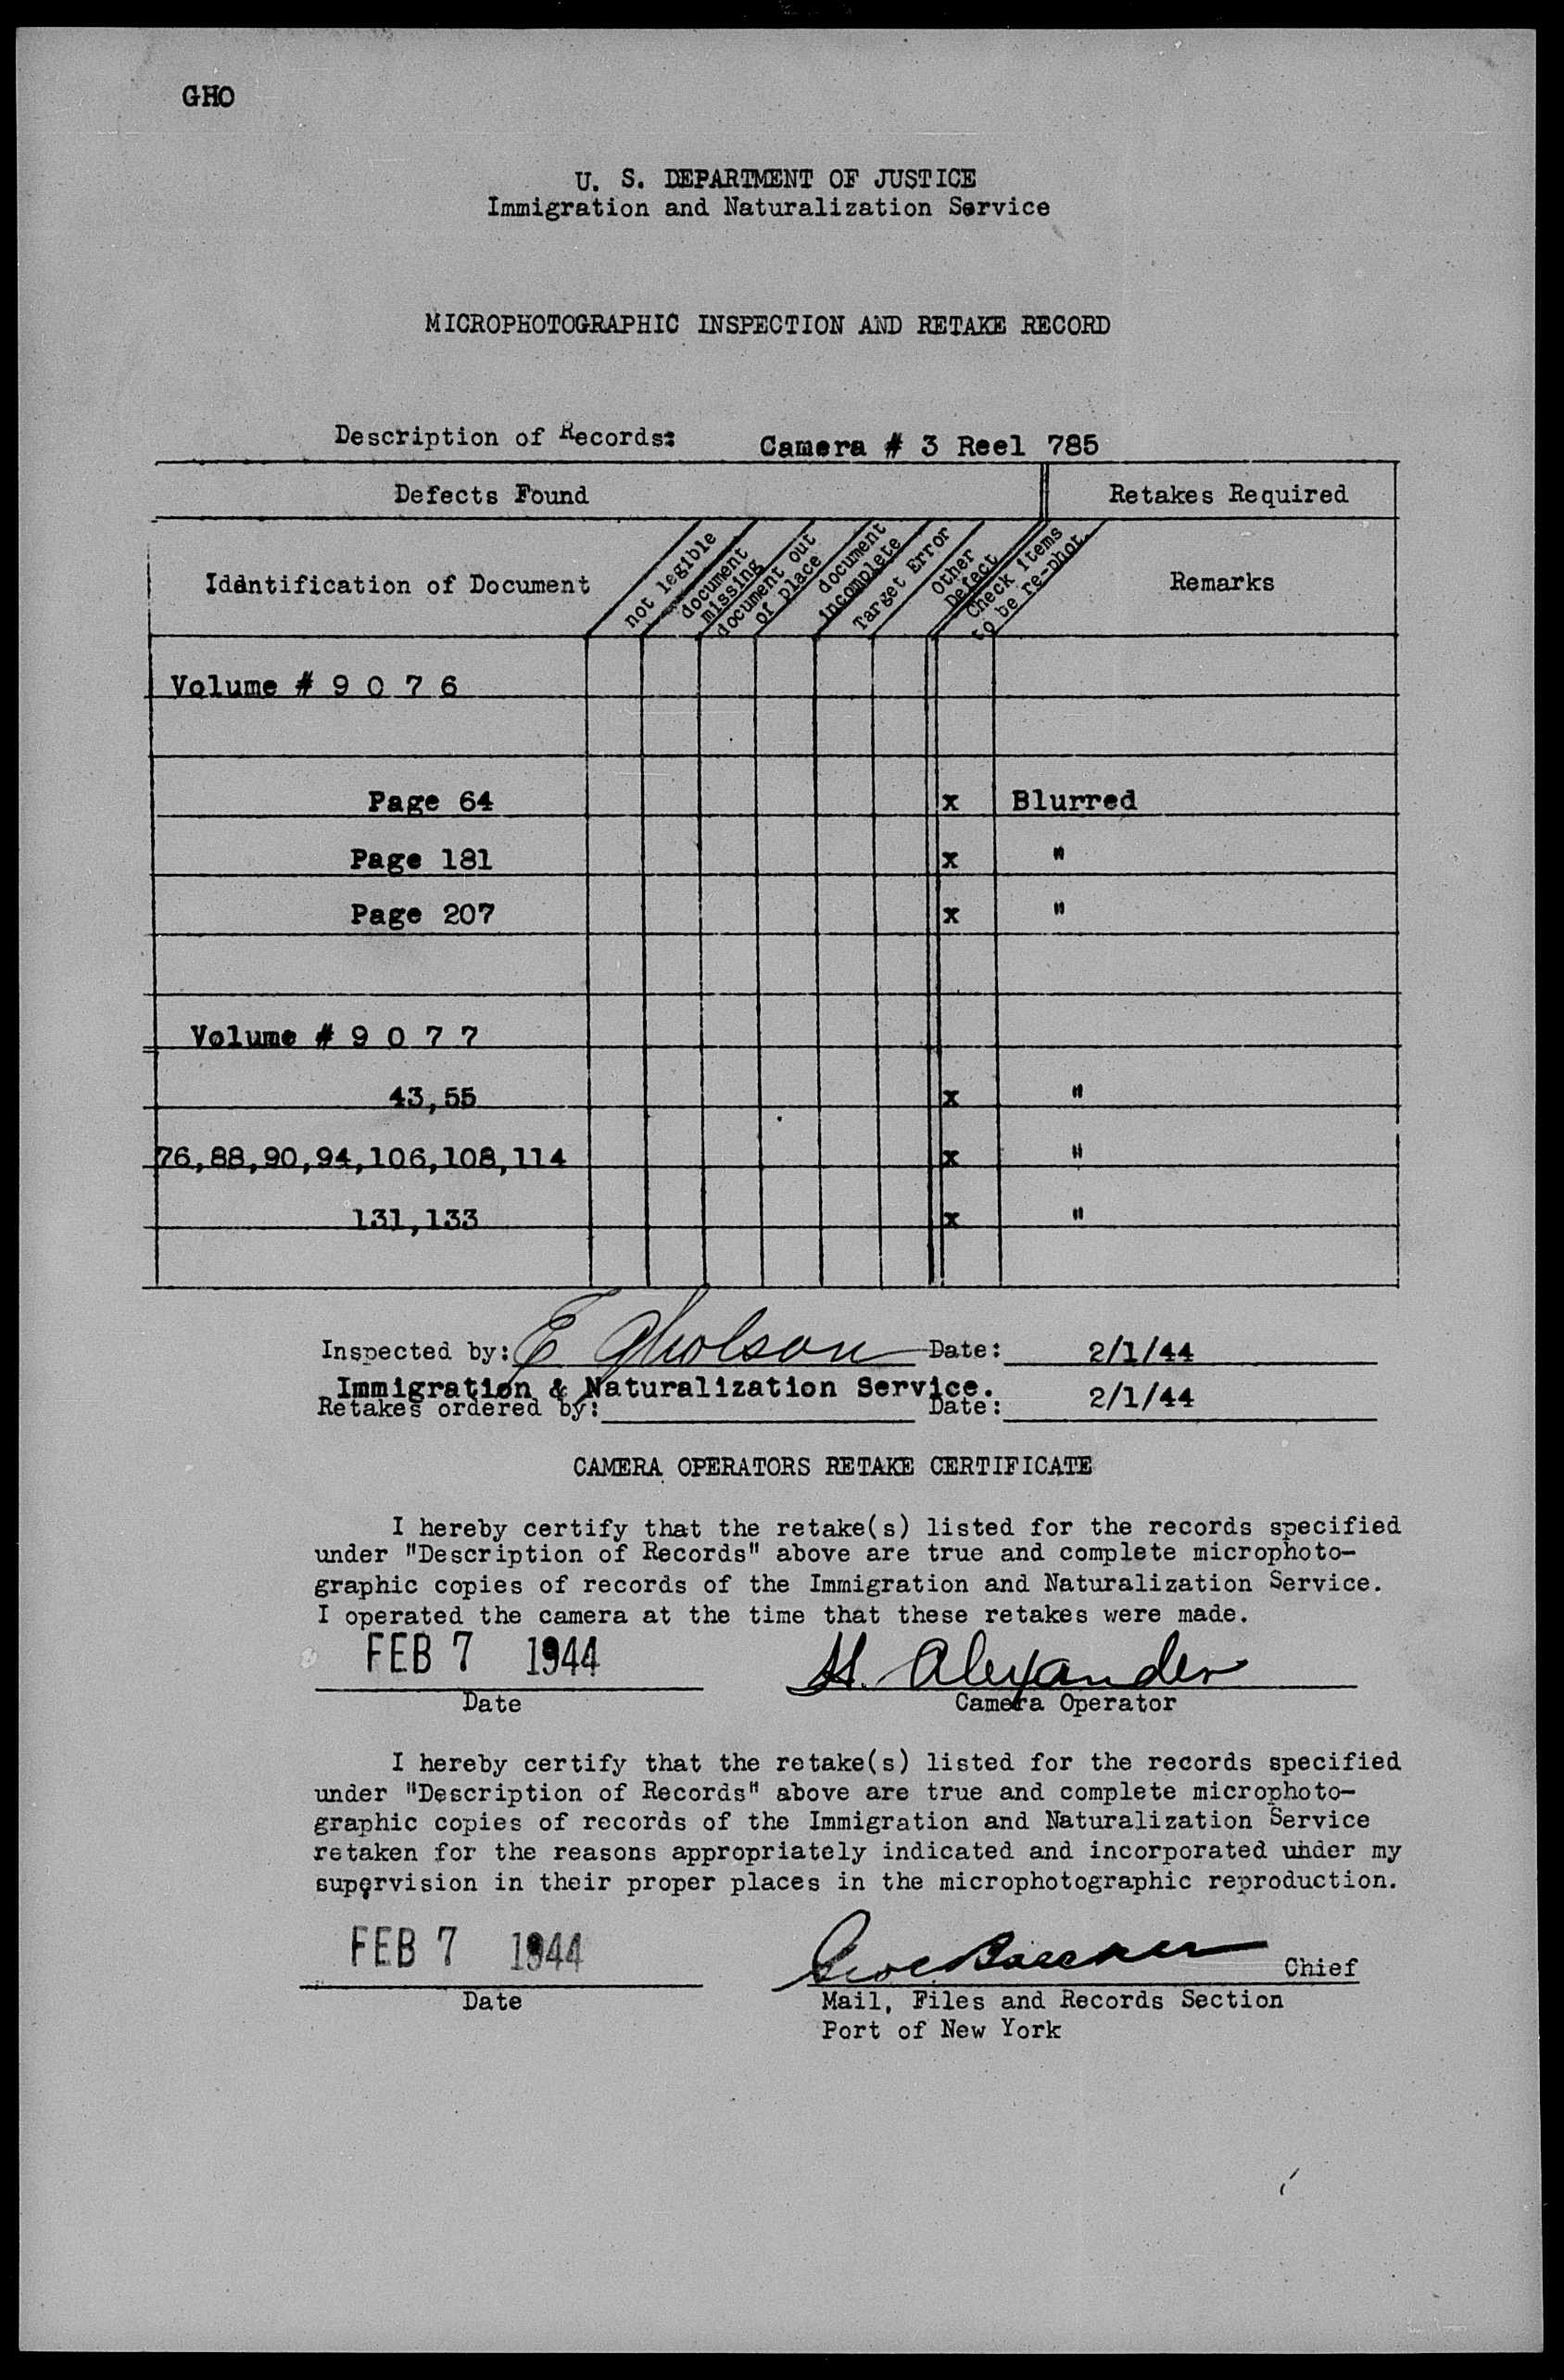 GHO
U. S. DEPARTMENT OF JUSTICE
Immigration and Naturalization Service
MICROPHOTOGRAPHIC INSPECTION AND RETAKE RECORD
Description of Records: Camera # 3 Reel 785
Defects Found Retakes Required
Identification of Document
not legible
document missing
document out of place
document incomplete
Target Error
Other Defect
Check items to be re-phot.
Remarks
Volume # 9 0 7 6
Page 64 x Blurred
Page 181 x "
Page 207 x "
Volume # 9 0 7 7
43,55 x "
76,88,90,94,106,108,114 x "
131,133 x "
Inspected by: E Gholson Date: 2/1/44
Immigration & Naturalization Service.
Retakes ordered by: Date: 2/1/44
CAMERA OPERATORS RETAKE CERTIFICATE
I hereby certify that the retake(s) listed for the records specified
under "Description of Records" above are true and complete microphoto-
graphic copies of records of the Immigration and Naturalization Service.
I operated the camera at the time that these retakes were made.
FEB 7 1944 H. Alexander
Date Camera Operator
I hereby certify that the retake(s) listed for the records specified
under "Description of Records" above are true and complete microphoto-
graphic copies of records of the Immigration and Naturalization Service
retaken for the reasons appropriately indicated and incorporated under my
supervision in their proper places in the microphotographic reproduction.
FEB 7 1944 Chief
Date Mail, Files and Records Section
Port of New York